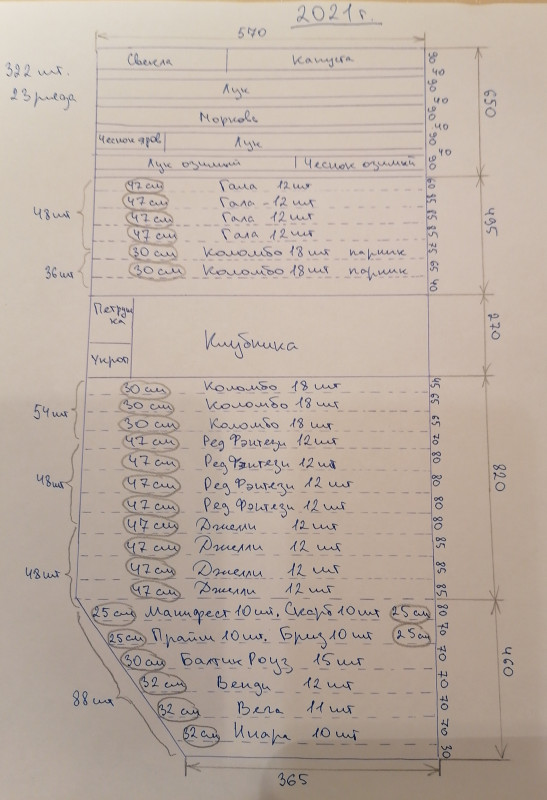 2021 г.
570
322 шт.
23 ряда
Свекла Капуста 90
Лук 90
Морковь 90
Чеснок яров Лук 90
Лук озимый Чеснок озимый 90
650
47 см Гала 12 шт 60
47 см Гала - 12 шт 85
47 см Гала 12 шт 85
47 см Гала 12 шт 85
48 шт
30 см Коломбо 18 шт парник 75
30 см Коломбо 18 шт парник 65
40
36 шт
495
Петруш
ка
Укроп
Клубника
270
30 см Коломбо 18 шт 45
30 см Коломбо 18 шт 65
30 см Коломбо 18 шт 65
54 шт
47 см Ред Фэнтези 12 шт 70
47 см Ред Фэнтези 12 шт 80
47 см Ред Фэнтези 12 шт 80
47 см Ред Фэнтези 12 шт 80
48 шт
47 см Джелли 12 шт 80
47 см Джелли 12 шт 85
47 см Джелли 12 шт 85
47 см Джелли 12 шт 85
48 шт
820
25 см Манифест 10 шт, Скарб 10 шт 25 см 80
25 см Прайм 10 шт, Бриз 10 шт 25 см 70
30 см Балтик Роуз 15 шт 70
32 см Венди 12 шт 70
32 см Вега 11 шт 70
32 см Инара 10 шт 70
30
88 шт
460
365